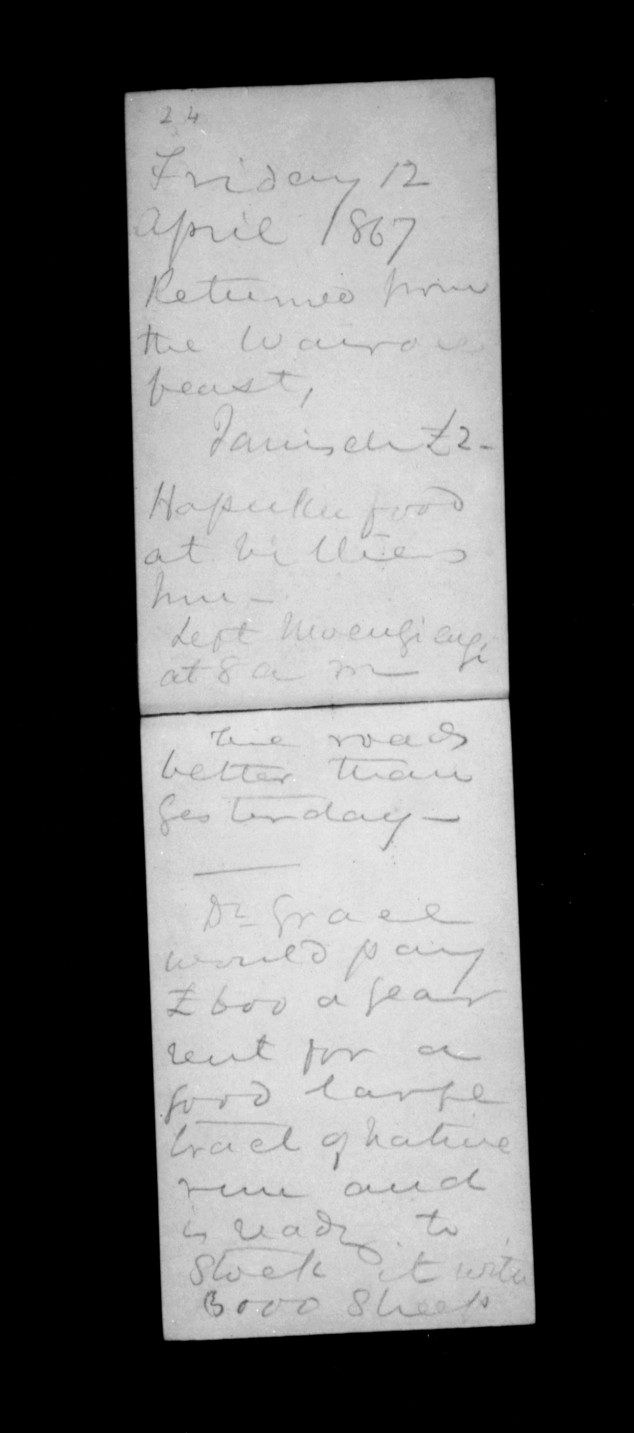 24
Friday 12
April 1867
Returned from
the Wairoa
beast,
£2-
Hapuku food
at Villiers
Left Moengiangi
at 8 a m
The roads
better than
yesterday -
Dr Grace
would pay
£600 a year
rent for a
good large
tract of native
run and
is ready to
stock it with
3000 Sheep